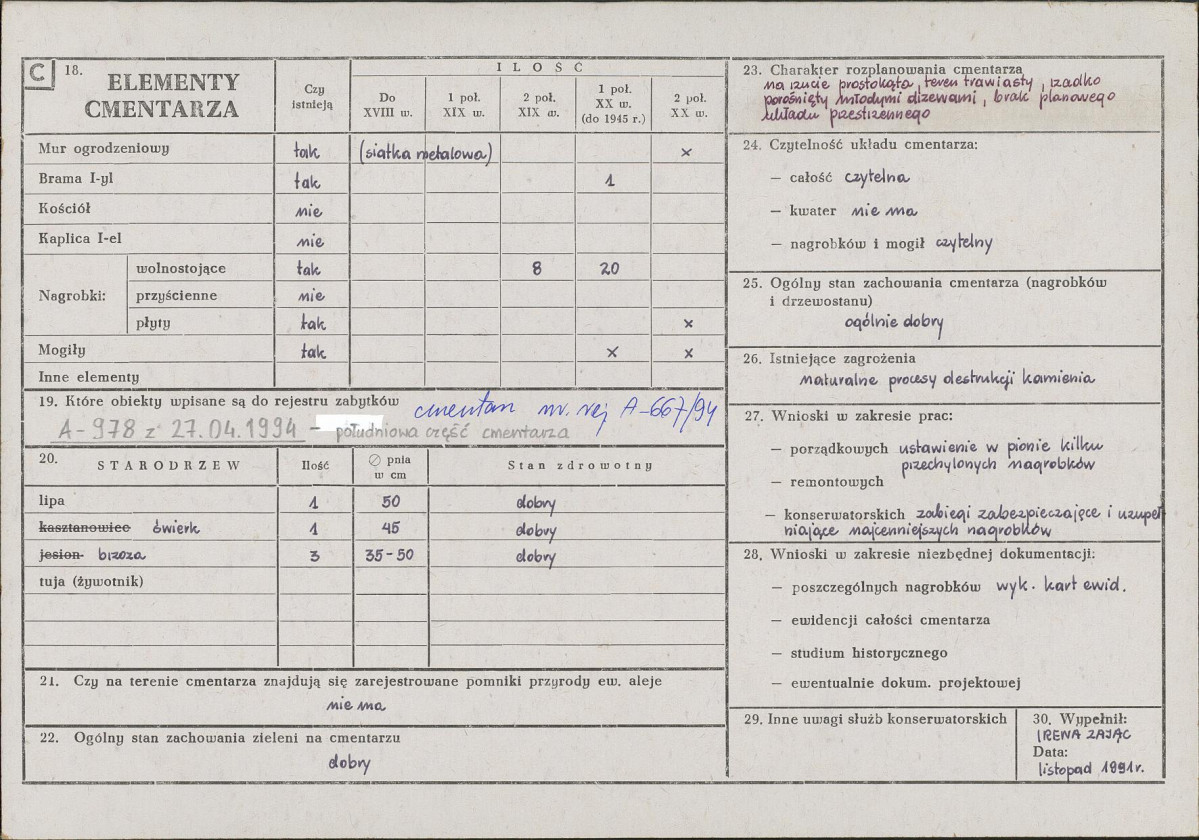 C 18. ELEMENTY
CMENTARZA
Czy
istnieją
ILOŚĆ
Do
XVIII w.
1 poł.
XIX w.
2 poł.
XIX w.
1 poł.
XX w.
(do 1945 r.)
2 poł.
XX w.
Mur ogrodzeniowy tak (siatka metalowa) x
Brama I-yl tak 1
Kościół nie
Kaplica I-el nie
Nagrobki:
wolnostojące tak 8 20
przyścienne nie
płyty tak x
Mogiły tak x x
Inne elementy
19. Które obiekty wpisane są do rejestru zabytków cmentarz nr. rej A-667/94
A-978 z 27.04.1994 - południowa część cmentarza
20. STARODRZEW Ilość ∅ pnia
w cm Stan zdrowotny
lipa 1 50 dobry
kasztanowiec świerk 1 45 dobry
jesion brzoza 3 35-50 dobry
tuja (żywotnik)
21. Czy na terenie cmentarza znajdują się zarejestrowane pomniki przyrody ew. aleje
nie ma
22. Ogólny stan zachowania zieleni na cmentarzu
dobry
23. Charakter rozplanowania cmentarza
na rzucie prostokąta, teren trawiasty, rzadko
porośnięty młodymi drzewami, brak planowego
układu przestrzennego
24. Czytelność układu cmentarza:
— całość czytelna
— kwater nie ma
— nagrobków i mogił czytelny
25. Ogólny stan zachowania cmentarza (nagrobków
i drzewostanu)
ogólnie dobry
26. Istniejące zagrożenia
naturalne procesy destrukcji kamienia
27. Wnioski w zakresie prac:
— porządkowych ustawienie w pionie kilku
przechylonych nagrobków
— remontowych
— konserwatorskich zabiegi zabezpieczające i uzupeł
niające najcenniejszych nagrobków
28. Wnioski w zakresie niezbędnej dokumentacji:
— poszczególnych nagrobków wyk. kart ewid.
— ewidencji całości cmentarza
— studium historycznego
— ewentualnie dokum. projektowej
29. Inne uwagi służb konserwatorskich
30. Wypełnił:
IRENA ZAJĄC
Data:
listopad 1991r.